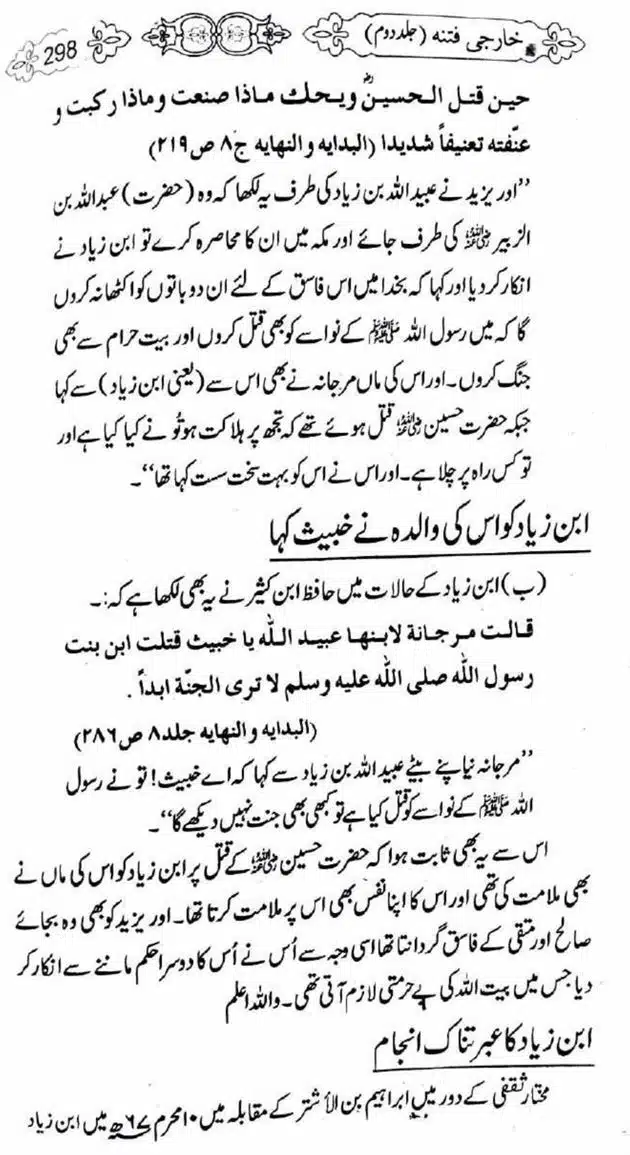 298
خارجی فتنہ (جلد دوم)
حین قتل الحسینؓ ویحك ماذا صنعت وماذا رکبت و
عنّفته تعنیفاً شدیدا (البدایه والنهایه ج ۸ ص ۲۱۹)
”اور یزید نے عبیداللہ بن زیاد کی طرف یہ لکھا کہ وہ (حضرت) عبداللہ بن
الزبیر ؓ کی طرف جائے اور مکہ میں ان کا محاصرہ کرے تو ابن زیاد نے
انکار کر دیا اور کہا کہ بخدا میں اس فاسق کے لئے ان دو باتوں کو اکٹھا نہ کروں
گا کہ میں رسول اللہ ﷺ کے نواسے کو بھی قتل کروں اور بیت حرام سے بھی
جنگ کروں۔ اور اس کی ماں مرجانہ نے بھی اس سے (یعنی ابن زیاد) سے کہا
جبکہ حضرت حسین ؓ قتل ہوئے تھے کہ تجھ پر ہلاکت ہو تُو نے کیا کیا ہے اور
تو کس راہ پر چلا ہے۔ اور اس نے اس کو بہت سخت سست کہا تھا“۔
ابن زیاد کو اس کی والدہ نے خبیث کہا
(ب) ابن زیاد کے حالات میں حافظ ابن کثیر نے یہ بھی لکھا ہے کہ:۔
قالت مرجانة لابنها عبید الله یا خبیث قتلت ابن بنت
رسول الله صلی الله علیه وسلم لا تری الجنّة ابداً .
(البدایه والنهایه جلد ۸ ص ۲۸۶)
”مرجانہ نیا پنے بیٹے عبیداللہ بن زیاد سے کہا کہ اے خبیث! تو نے رسول
اللہ ﷺ کے نواسے کو قتل کیا ہے تو کبھی بھی جنت نہیں دیکھے گا“۔
اس سے یہ بھی ثابت ہوا کہ حضرت حسین ؓ کے قتل پر ابن زیاد کو اس کی ماں نے
بھی ملامت کی تھی اور اس کا اپنا نفس بھی اس پر ملامت کرتا تھا۔ اور یزید کو بھی وہ بجائے
صالح اور متقی کے فاسق گردانتا تھا اسی وجہ سے اُس نے اُس کا دوسرا حکم ماننے سے انکار کر
دیا جس میں بیت اللہ کی بے حرمتی لازم آتی تھی۔ واللہ اعلم
ابن زیاد کا عبرتناک انجام
مختار ثقفی کے دور میں ابراہیم بن الأشتر کے مقابلہ میں ۱۰ محرم ۶۷ھ میں ابن زیاد